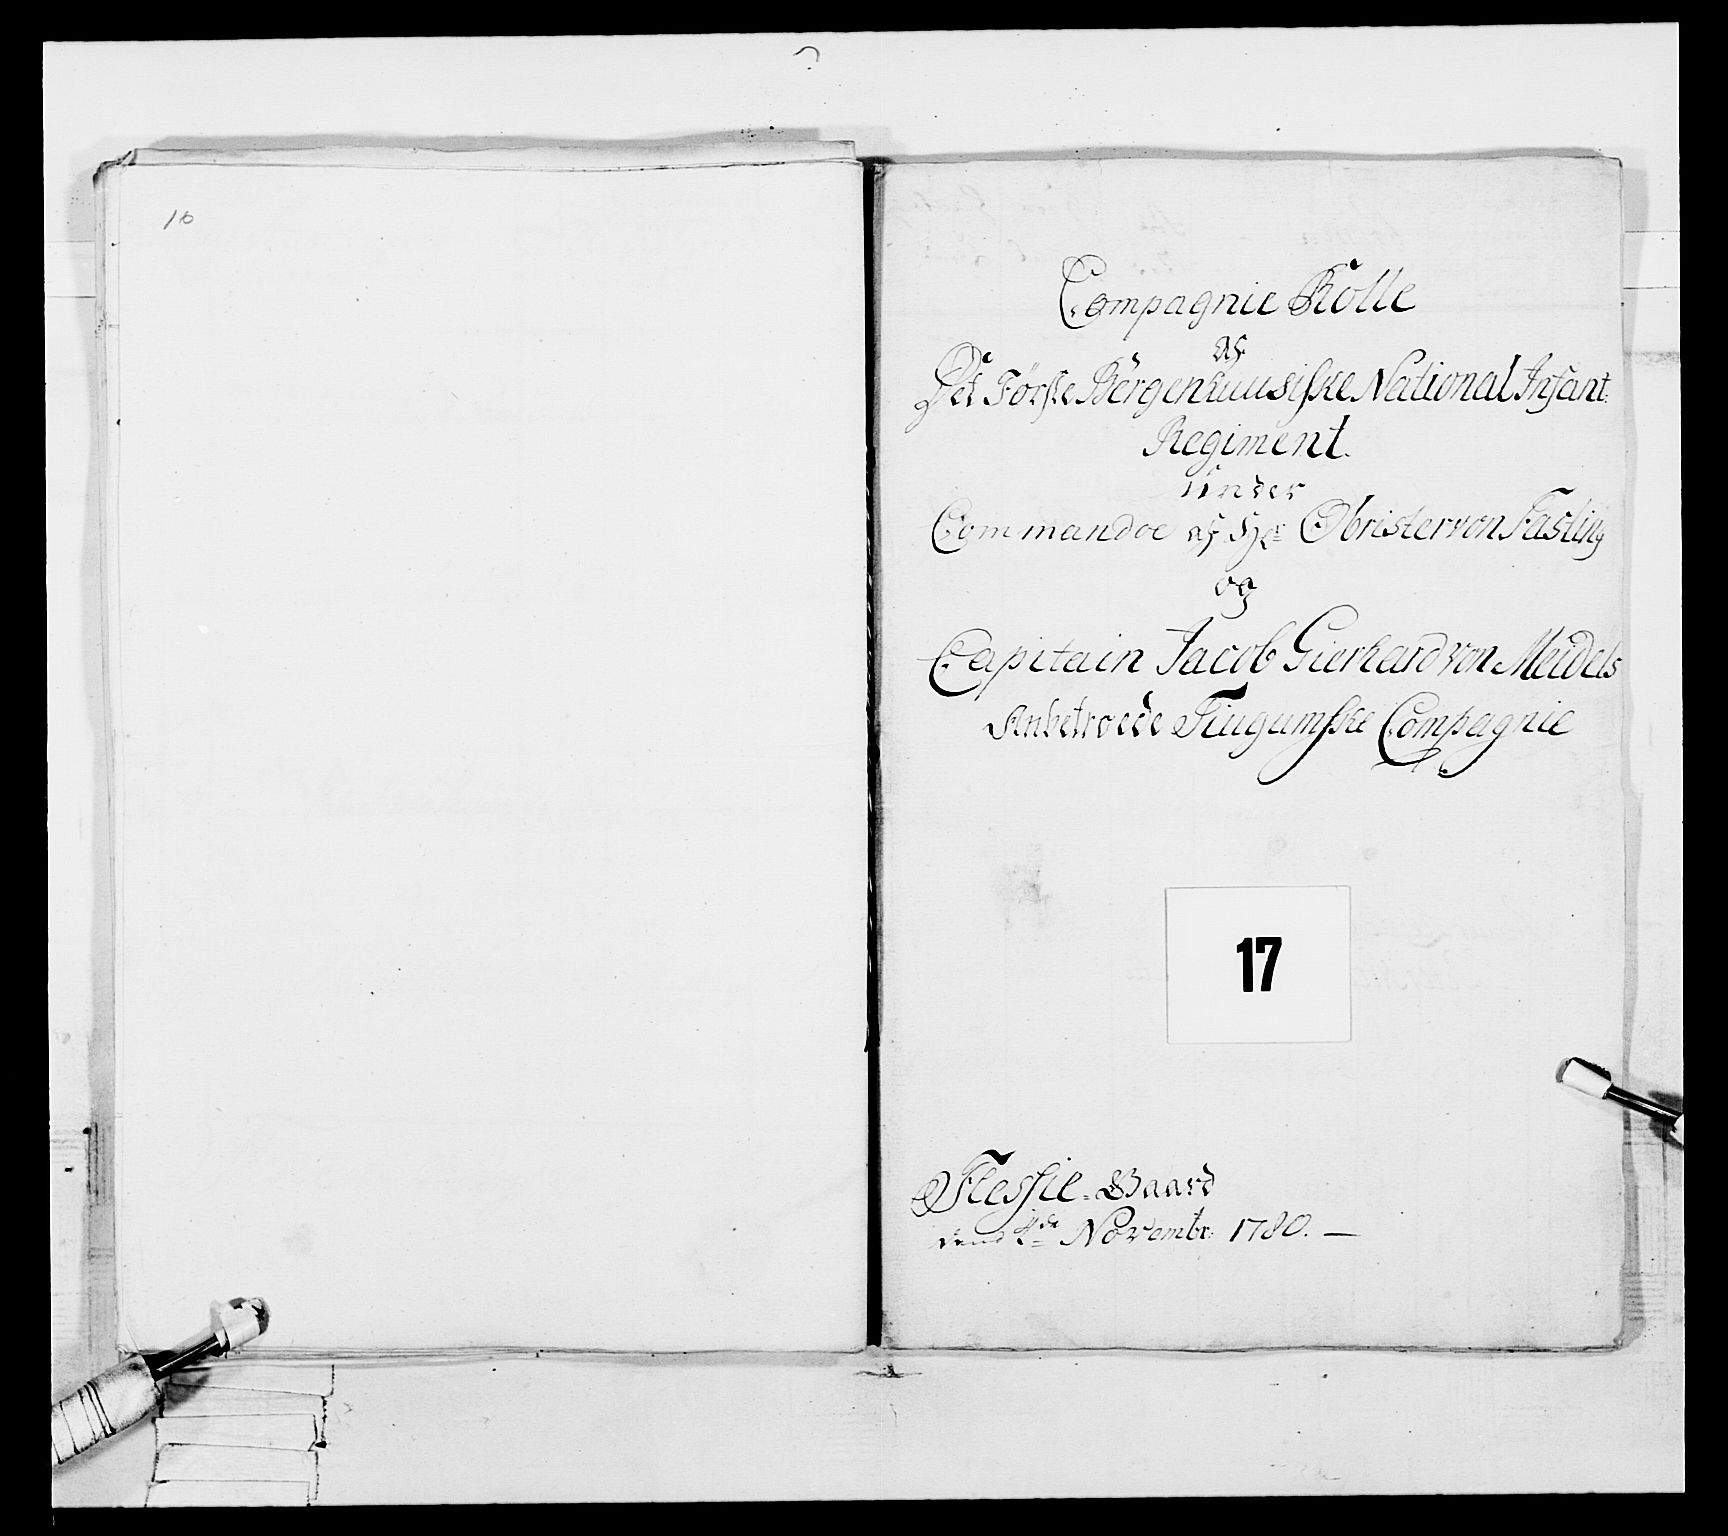 10
Compagnie Rolle
af
Det Første Bergenhuusiske National Infant:
Regiment.
Under
Commandoe af Hr: Obrister von Fasting
og
Capitain Jacob Gierhard von Meidels
Anbetroede Compagnie
17
Flessie-Gaard
Novembr: 1780. —